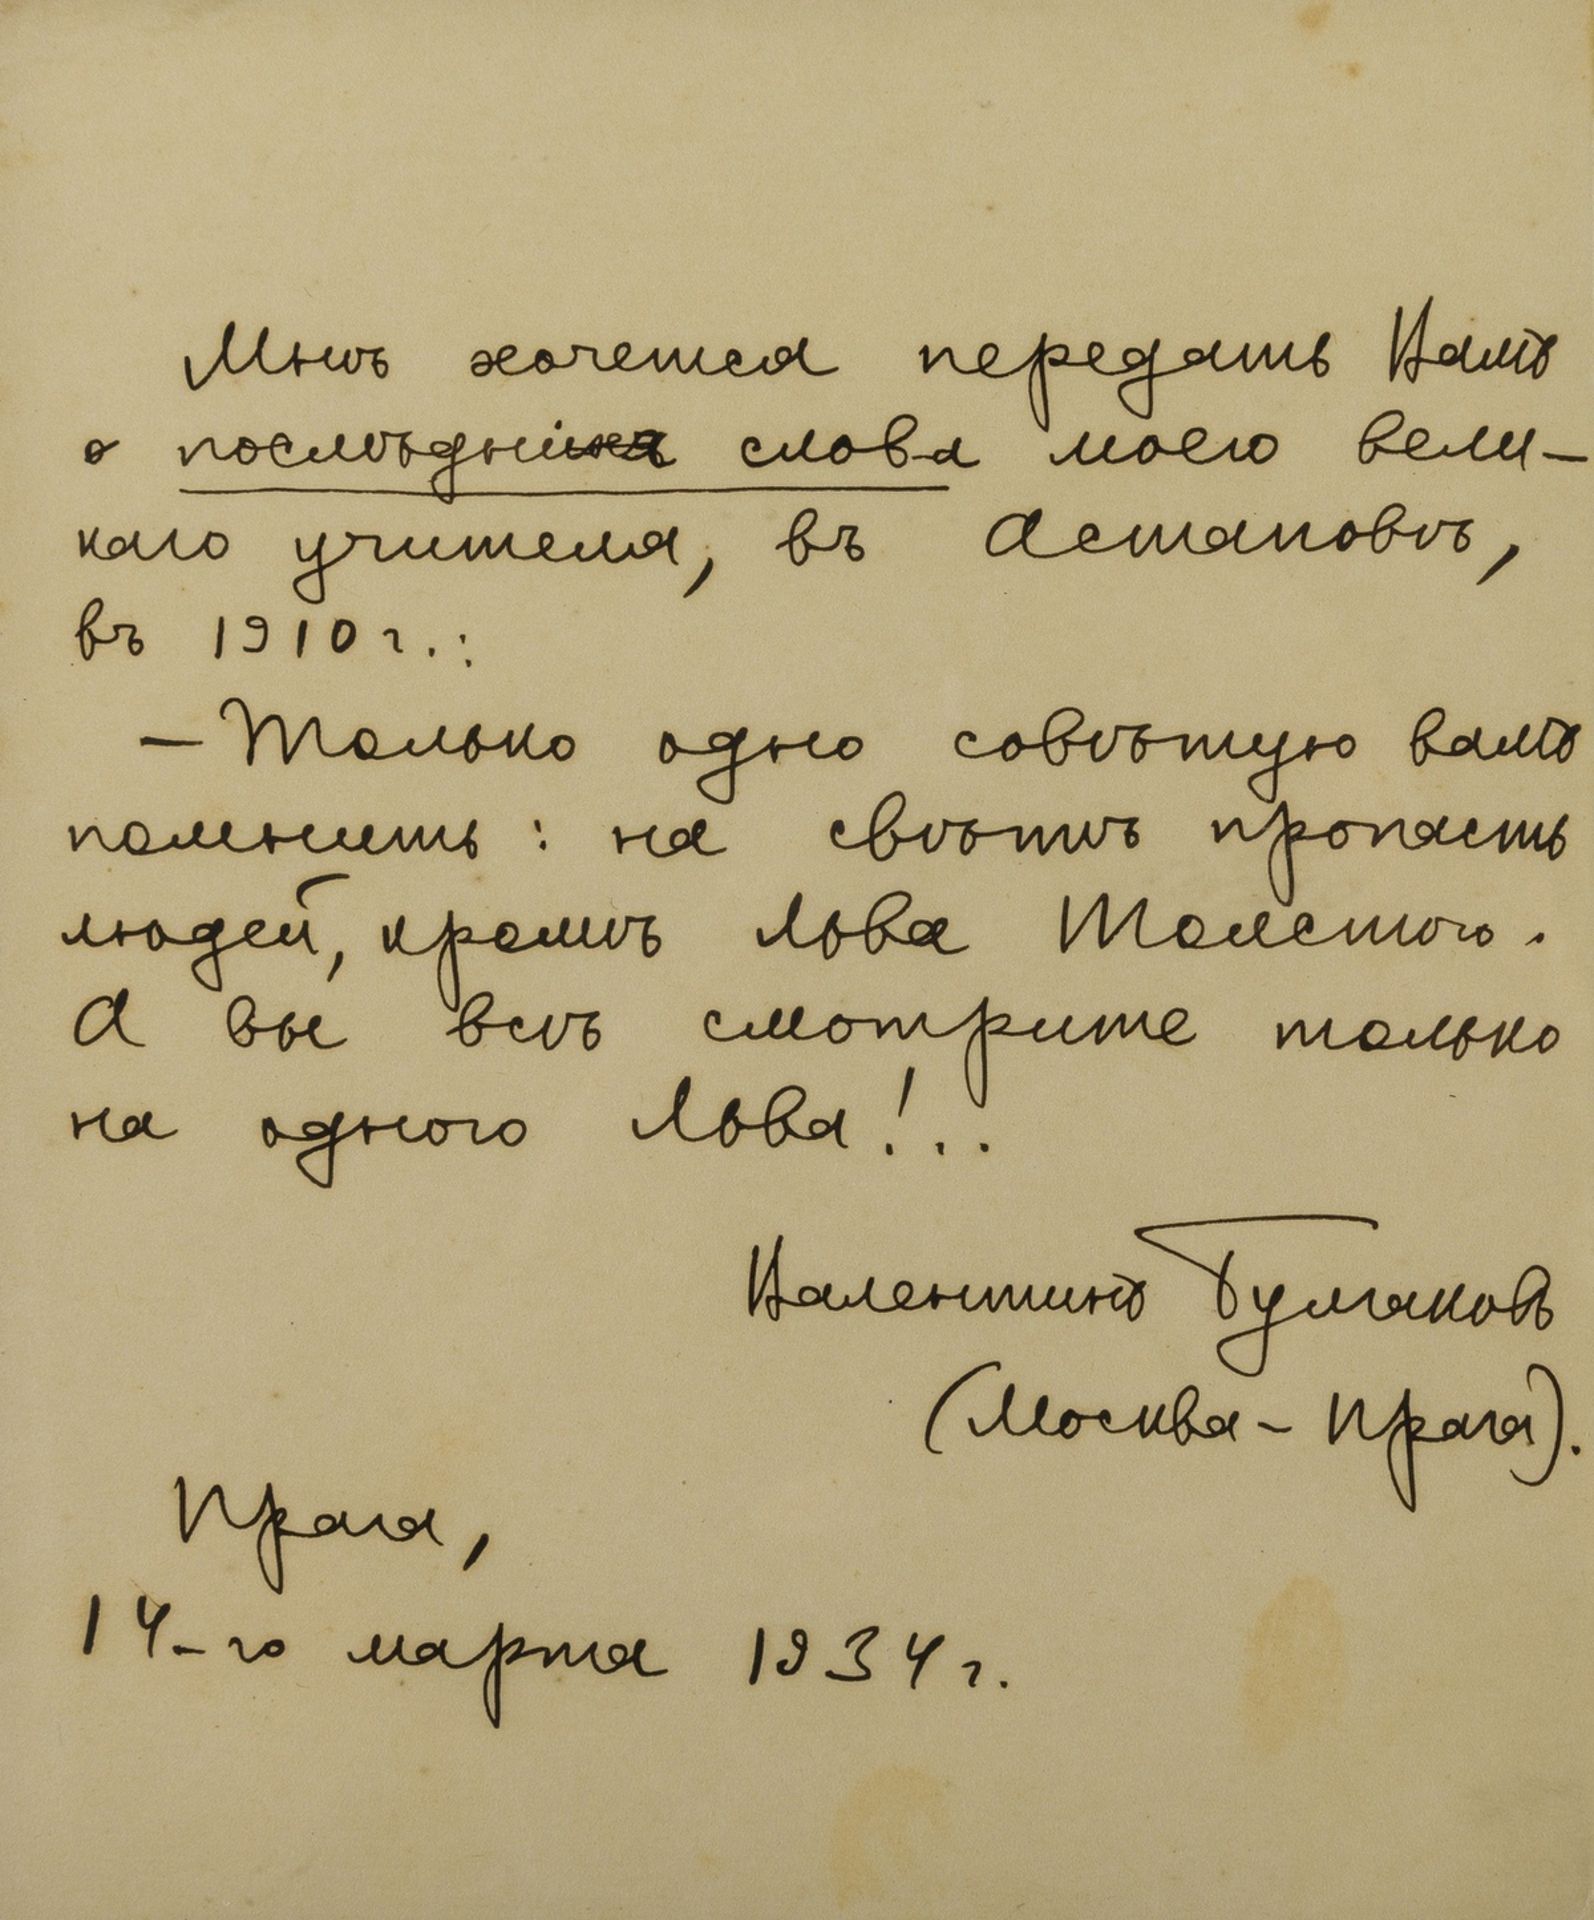 Мнѣ хочется передать Вамъ
о послѣднія слова моего вели-
каго учителя, въ Астаповѣ,
въ 1910 г.:
— Только одно совѣтую вамъ
помнить: на свѣтѣ пропасть
людей, кромѣ Льва Толстого.
А вы всѣ смотрите только
на одного Льва!..
Валентинъ Булгаковъ
(Москва - Прага).
Прага,
14-го марта 1934 г.